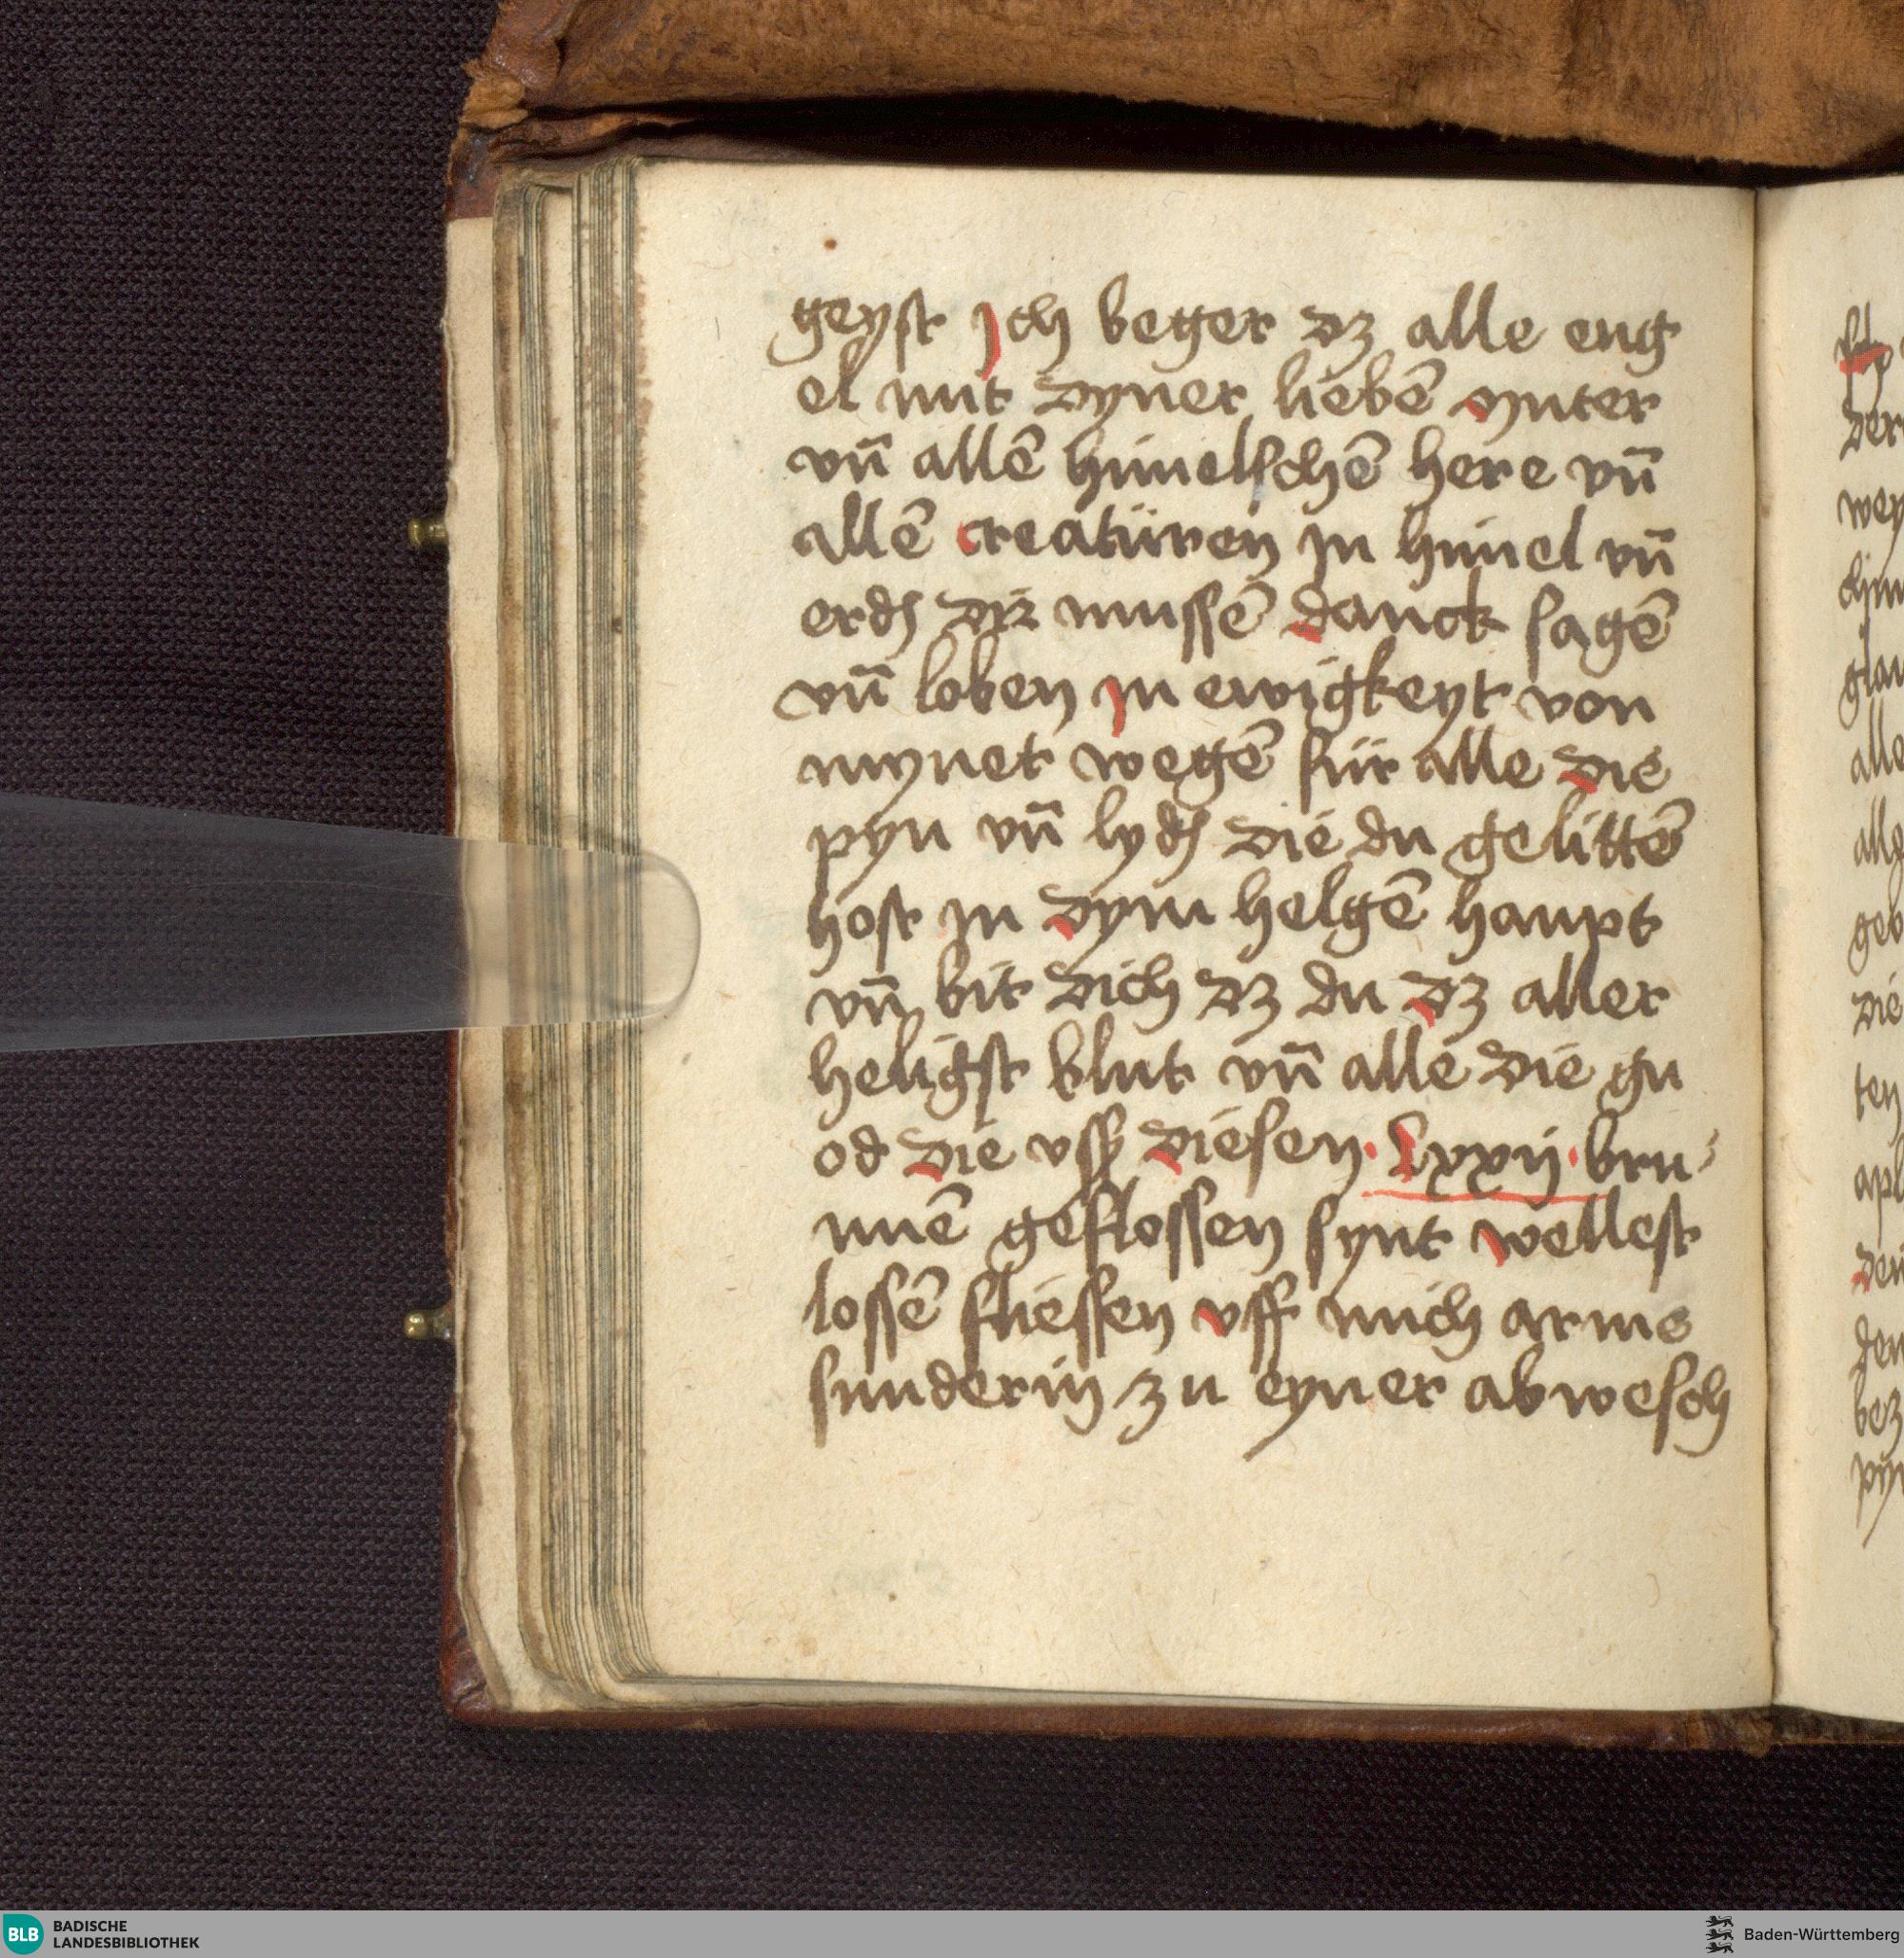 geyst jch beger dz alle eng
el mit dyner liebē Muter
vn̄ allē himelschē here vn̄
allē creatüren jn himel vn̄
erdē dir mussē danck sagē
vn̄ loben jn ewigkeyt von
mynet wegē für alle die
pyn vn̄ lydē die du gelittē
host jn dym helgē haupt
vn̄ bit dich dz du dz aller
heligst blut vn̄ alle die gn
od die vsß diesen · Lxxij · bru
nnē geflossen synt wellest
lossē fliessen vff mich arme
sunderin zu eyner abwesch
der
wey
alle
die
ten
den
BLB BADISCHE
LANDESBIBLIOTHEK
Baden-Württemberg